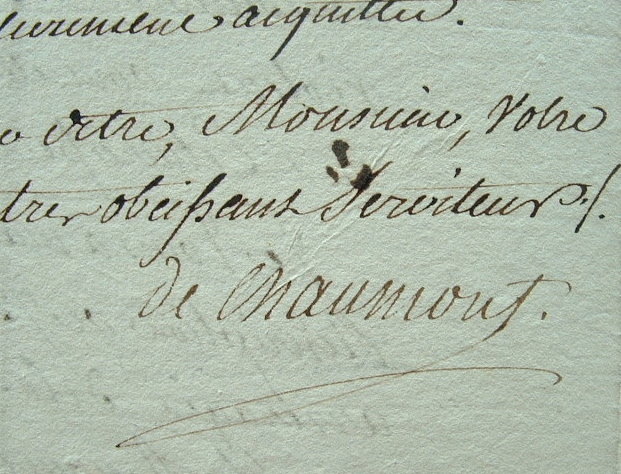 acquittée.
être, Monsieur, Votre
tres obeissant Serviteur ./.
de Chaumont.